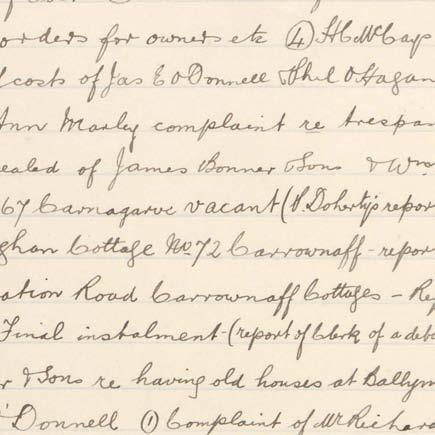 orders for owners etc (4) H C McCay
costs of Jas E O'Donnell & Phil O'Hagan
Ann Marley complaint re trespas
ealed of James Bonner & Sons & Wm
67 Carnagarve vacant (P. Doherty's repor
ghan Cottage No 72 Carrownaff - repor
ation Road Carrownaff Cottages - Re
Final instalment - (report of Clerk of a deba
r & Sons re having old houses at Ballym
O'Donnell (1) Complaint of Mr Richard